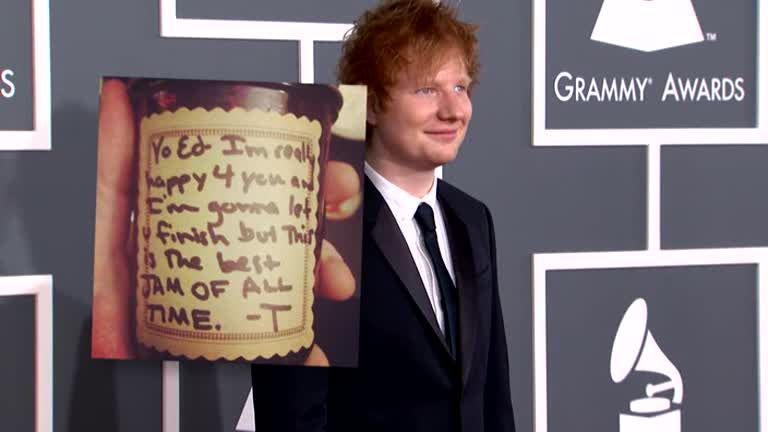 S
GRAMMY® AWARDS
TM
Yo Ed- I'm really
happy 4 you and
I'm gonna let
u finish but This
is The best
JAM OF ALL
TIME. -T